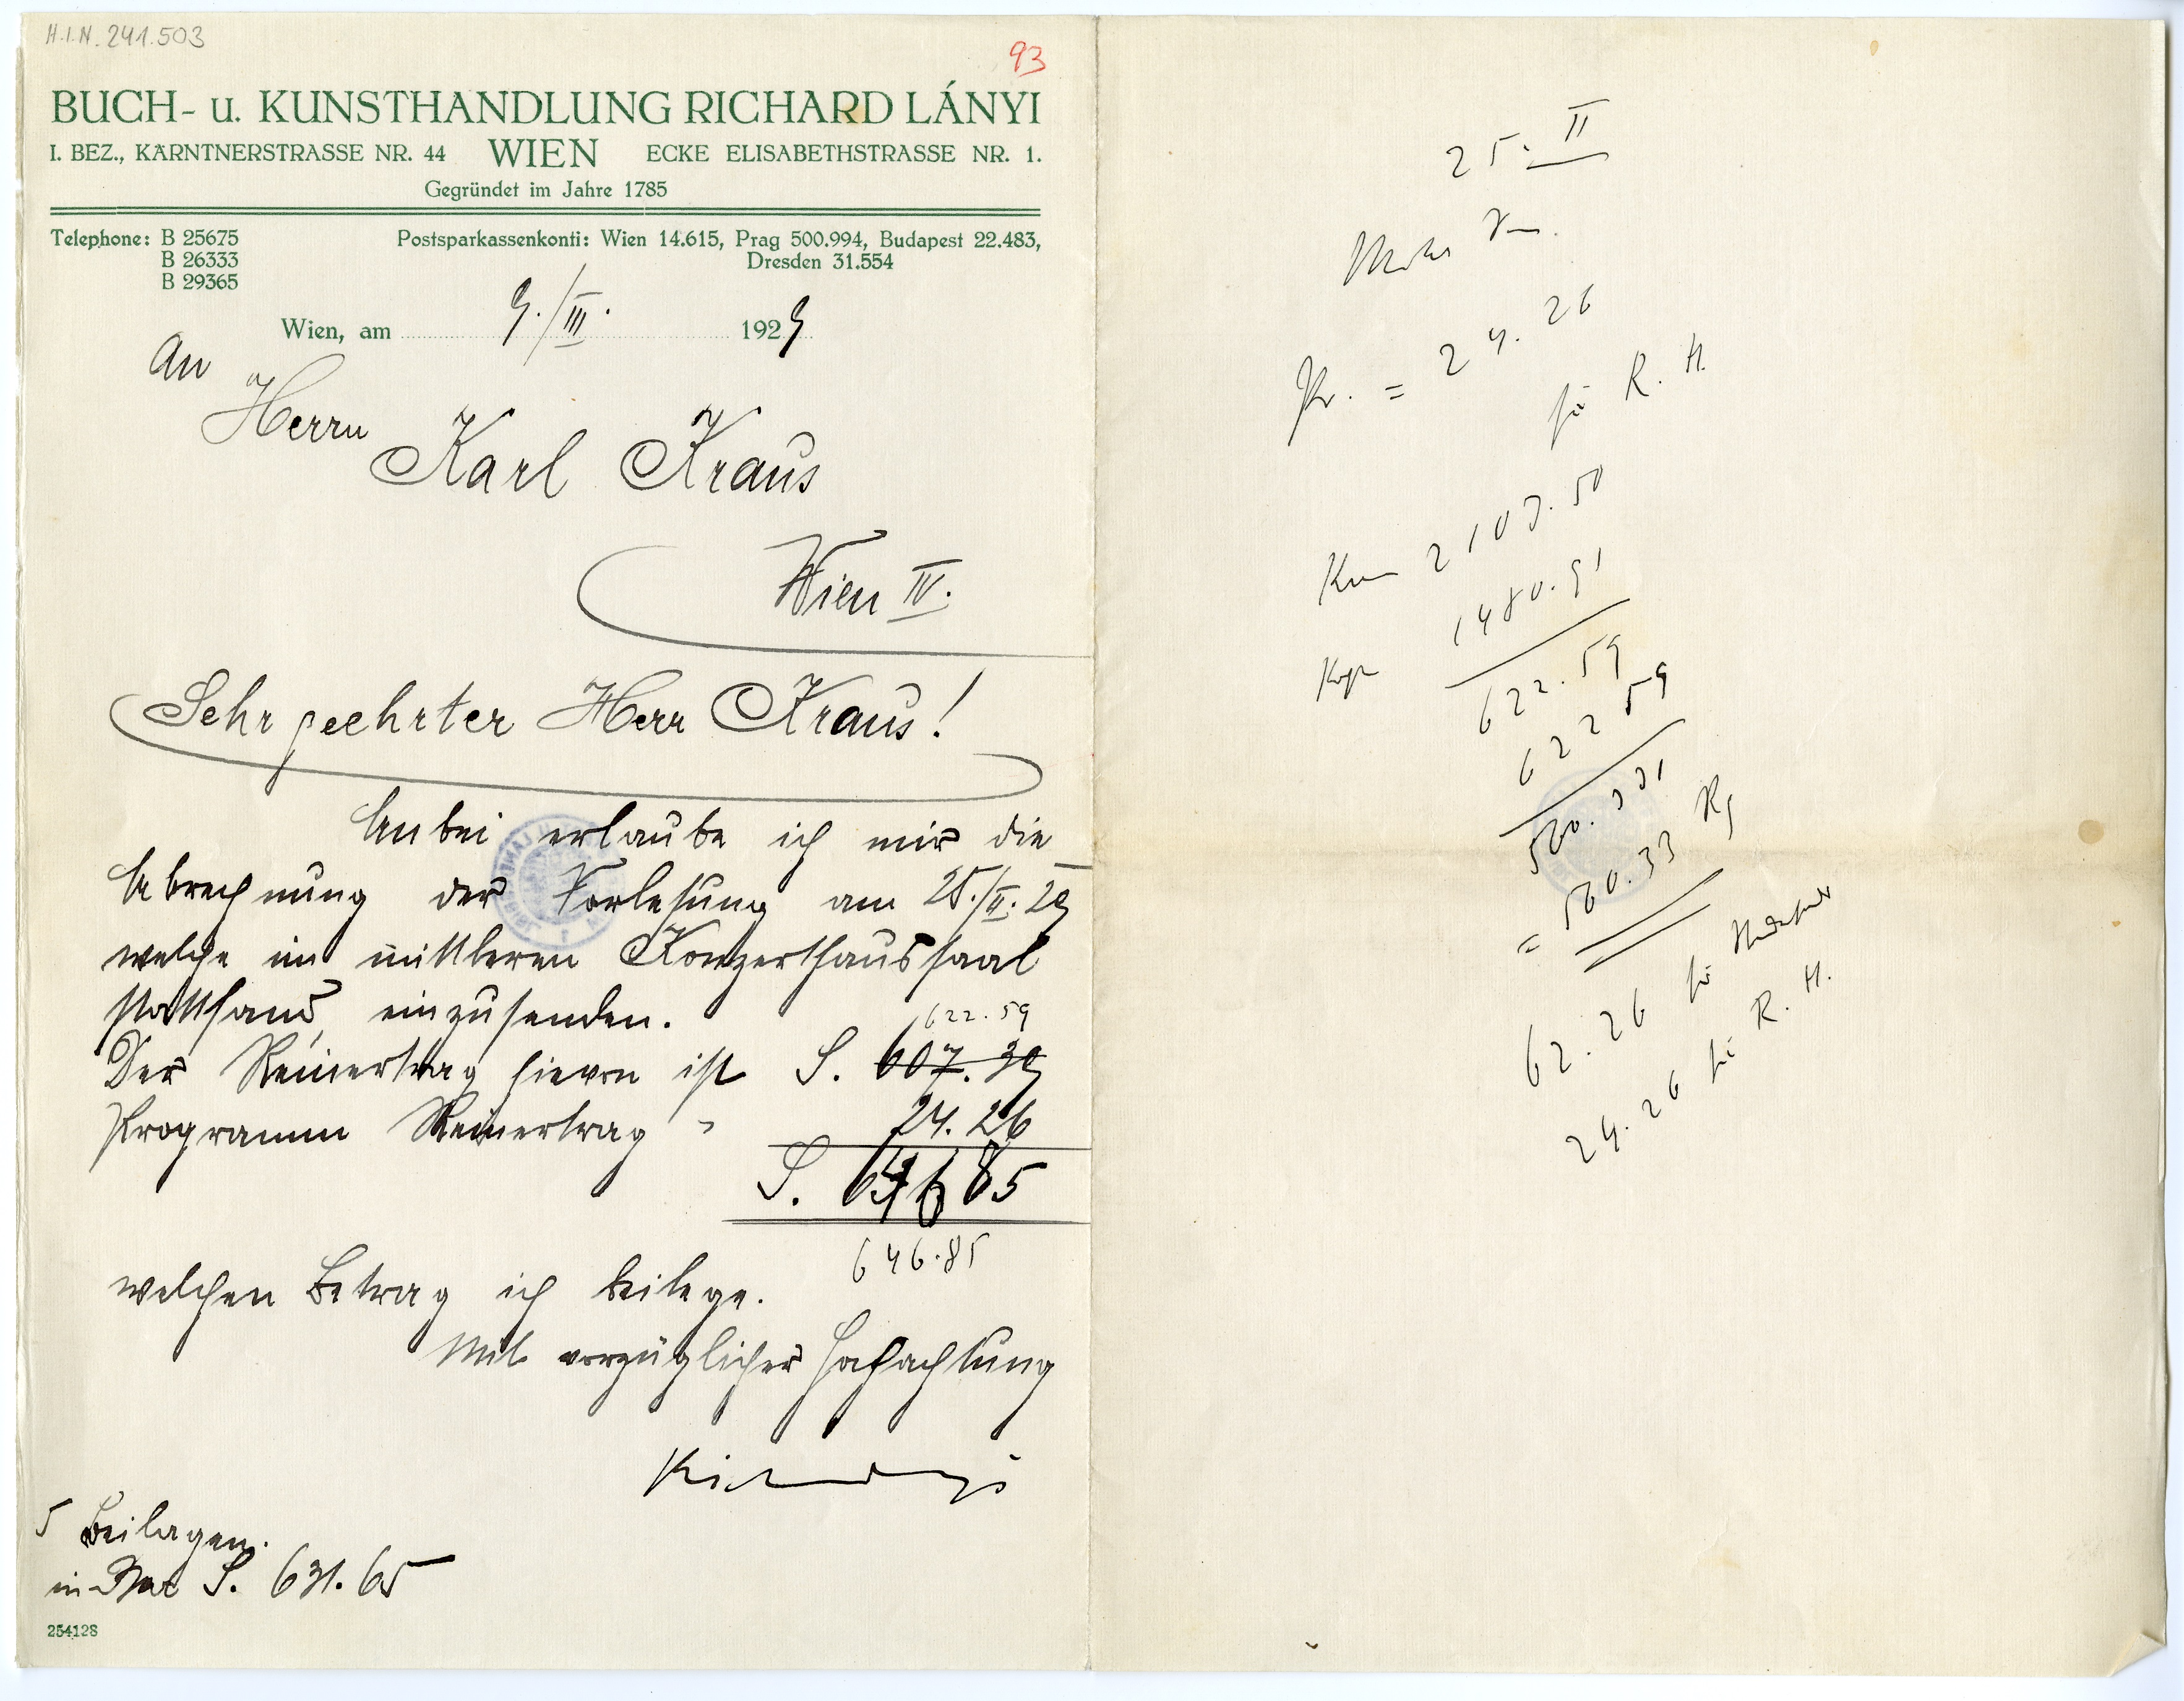 H.I.N. 241.503
93
BUCH- u. KUNSTHANDLUNG RICHARD LÁNYI
I. BEZ., KÄRNTNERSTRASSE NR. 44 WIEN ECKE ELISABETHSTRASSE NR. 1.
Gegründet im Jahre 1785
Telephone: B 25675
B 26333
B 29365
Postsparkassenkonti: Wien 14.615, Prag 500.994, Budapest 22.483,
Dresden 31.554
Wien, am 9./III. 1929
An
Herrn
Karl Kraus
Wien IV.
Sehr geehrter Herr Kraus!
Anbei erlaube ich mir die
Abrechnung der Vorlesung am 25./II. 29
welche im mittleren Konzerthaussaal
stattfand, einzusenden.
622.59
Der Reinertrag hievon ist S. 607.39
Programm Reinertrag " 24.26
S. 646 85
646.85
welchen Betrag ich beilege.
Mit vorzüglicher Hochachtung
5 Beilagen.
in Bar S. 631.65
254128
25. II
= 24.26
für R. H.
2103.50
1480.91
622.59
622 59
560.331
= 560.33
62.26 für
24.26 für R. H.